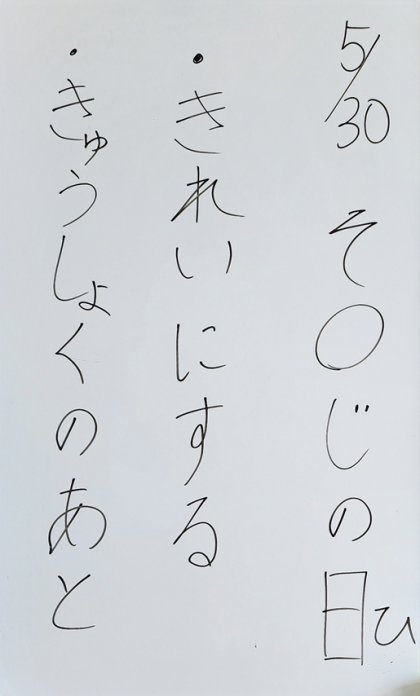 5/30 そ〇じの日ひ
・きれいにする
・きゅうしょくのあと